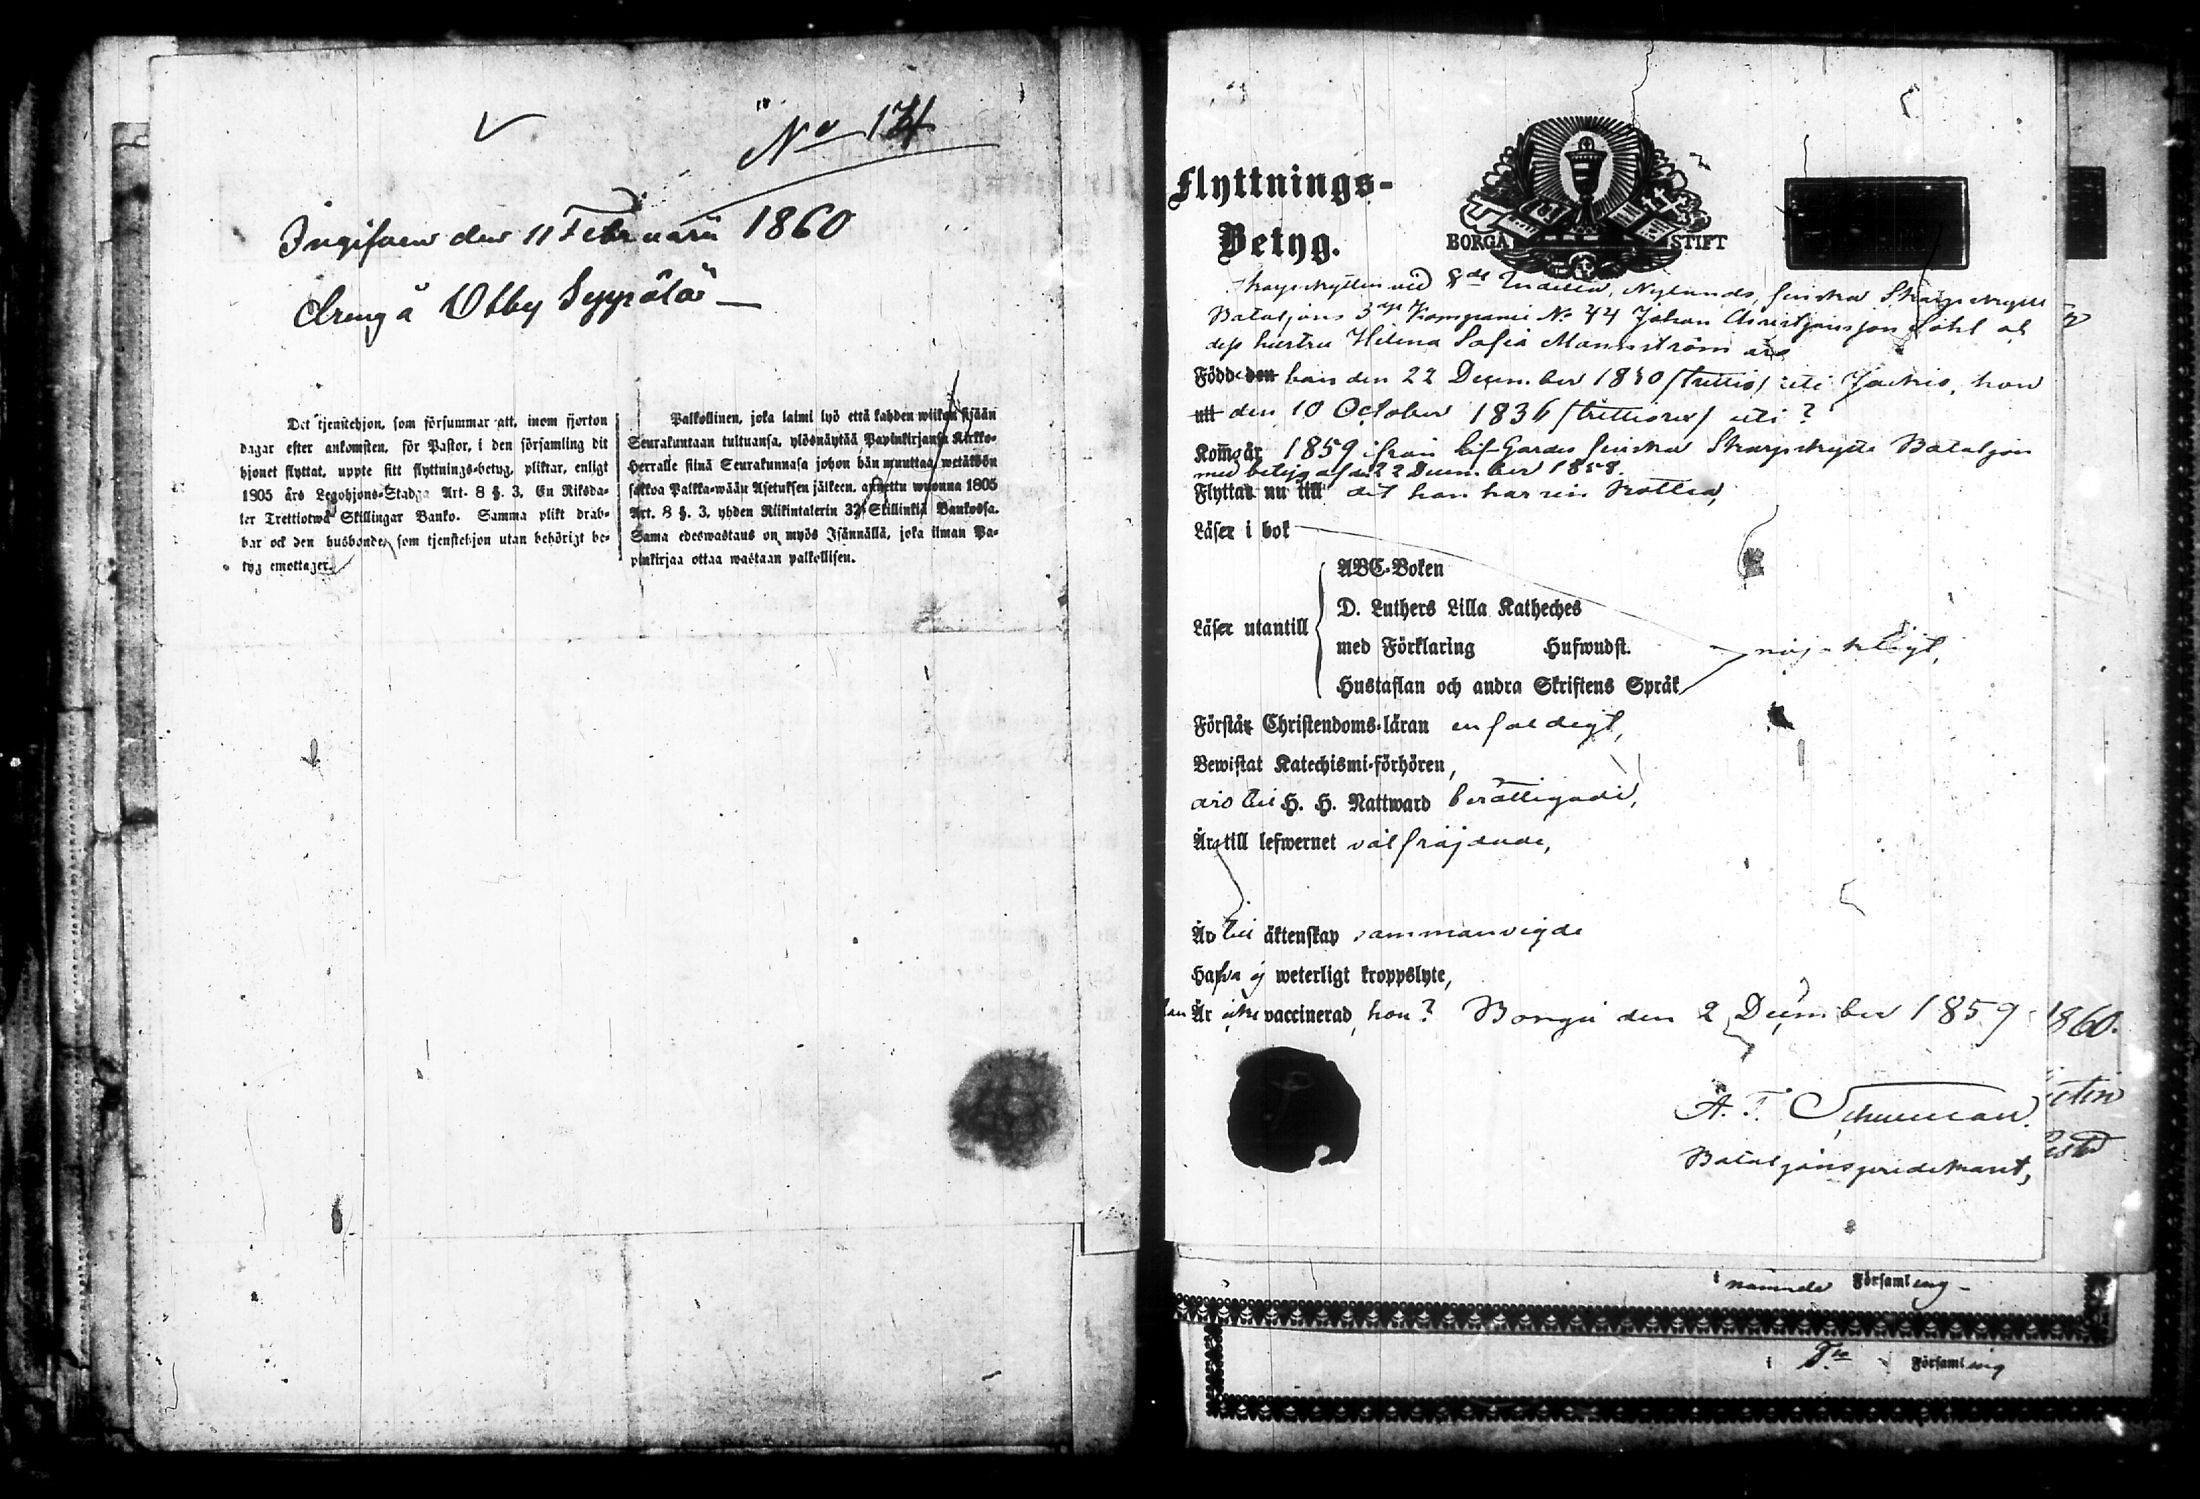 No 14
Ingifven den 11 Februarii 1860
dreng å Otby Seppälä
Det tjenstehjon, som försummar att, inom fjorton
dagar efter ankomsten, för Pastor, i den församling dit
hjonet flyttat, uppte sitt flyttnings-betyg, pliktar, enligt
1805 års Legohjons-Stadga Art. 8 §. 3, En Riksda-
ler Trettiotwå Skillingar Banko. Samma plikt drab-
bar ock den husbonde, som tjenstehjon utan behörigt be-
tyg emottager.
Palkollinen, joka laimi lyö että kahden wiikon sisään
Seurakuntaan tultuansa, ylösnäytää Papinkirjansa Kirkko-
Herralle siinä Seurakunnasa johon hän muuttaa, wetäköön
sakkoa Palkka-wään Asetuksen jälkeen, annettu wuonna 1805
Art. 8 §. 3, yhden Riikintalerin 32 Skillinkiä Bankossa.
Sama edeswastaus on myös Isännällä, joka ilman Pa-
pinkirjaa ottaa wastaan palkollisen.
Flyttnings-
Betyg.
BORGÅ STIFT
Skarpskytten vid 8de Indelta, Nylands, finska Skarpskytte
Bataljons 3dje Kompanie No 44 Johan Christjansson Ståhl och
dess hustru Helena Sofia Mannström äro
Född den han den 22 December 1830 /trettio/ uti Jackis, hon
utt den 10 October 1836 /trettiosex/ uti ?
Kom år 1859 ifrån Lif-Gardes finska Skarpskytte Bataljon
med betyg af den 22 December 1858.
Flyttar nu till det han har sin Rotten,
Läser i bok
Läser utantill
ABC-Boken
D. Luthers Lilla Katheches
med Förklaring Hufwudst.
Hustaflan och andra Skriftens Språk
nöjaktligt,
Förstår Christendoms-läran enfaldigt,
Bewistat Katechismi-förhören,
äro till H. H. Nattward berättigade,
Är till lefwernet välfräjdade,
Är till äktenskap sammanvigde
Hafva ej weterligt kroppslyte,
han Är icke vaccinerad, hon? Borgå den 2 December 1859
1860.
A. F. Schueman.
Bataljonspredikant,
i nämnde Församling
i Församling